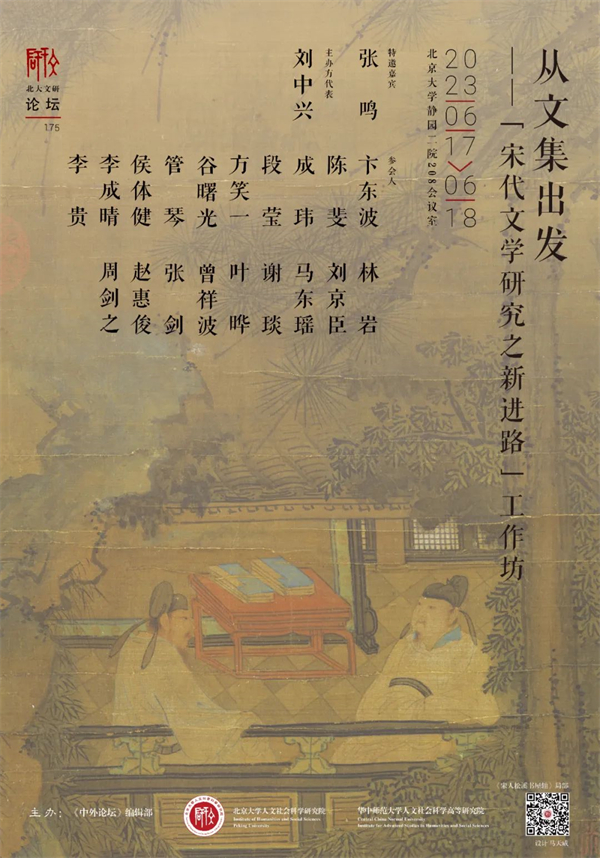 从文集出发
——「宋代文学研究之新进路」工作坊
20
23
06
17
06
18
北京大学静园二院208会议室
特邀嘉宾
张鸣
主办方代表
刘中兴
参会人
卞东波 林岩
陈斐 刘京臣
成玮 马东瑶
段莹 谢琰
方笑一 叶晔
谷曙光 曾祥波
管琴 张剑
侯体健 赵惠俊
李成晴 周剑之
李贵
北大文研
论坛
175
《宋人松溪书屋轴》局部
设计 马天诚
主办：《中外论坛》编辑部
北京大学人文社会科学研究院
Institute of Humanities and Social Sciences
Peking University
华中师范大学人文社会科学高等研究院
Central China Normal University
Institute for Advanced Studies in Humanities and Social Sciences